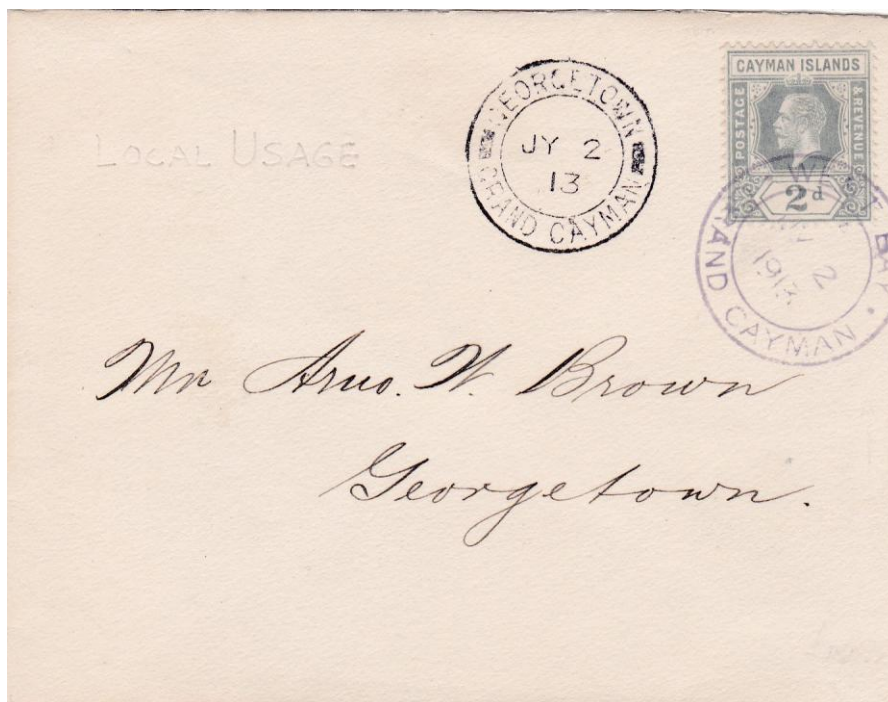 LOCAL USAGE
GEORGETOWN
JY 2
13
GRAND CAYMAN
CAYMAN ISLANDS
POSTAGE
& REVENUE
2d
WEST BAY.
2
1913
GRAND CAYMAN
Mr W. Brown
Georgetown.